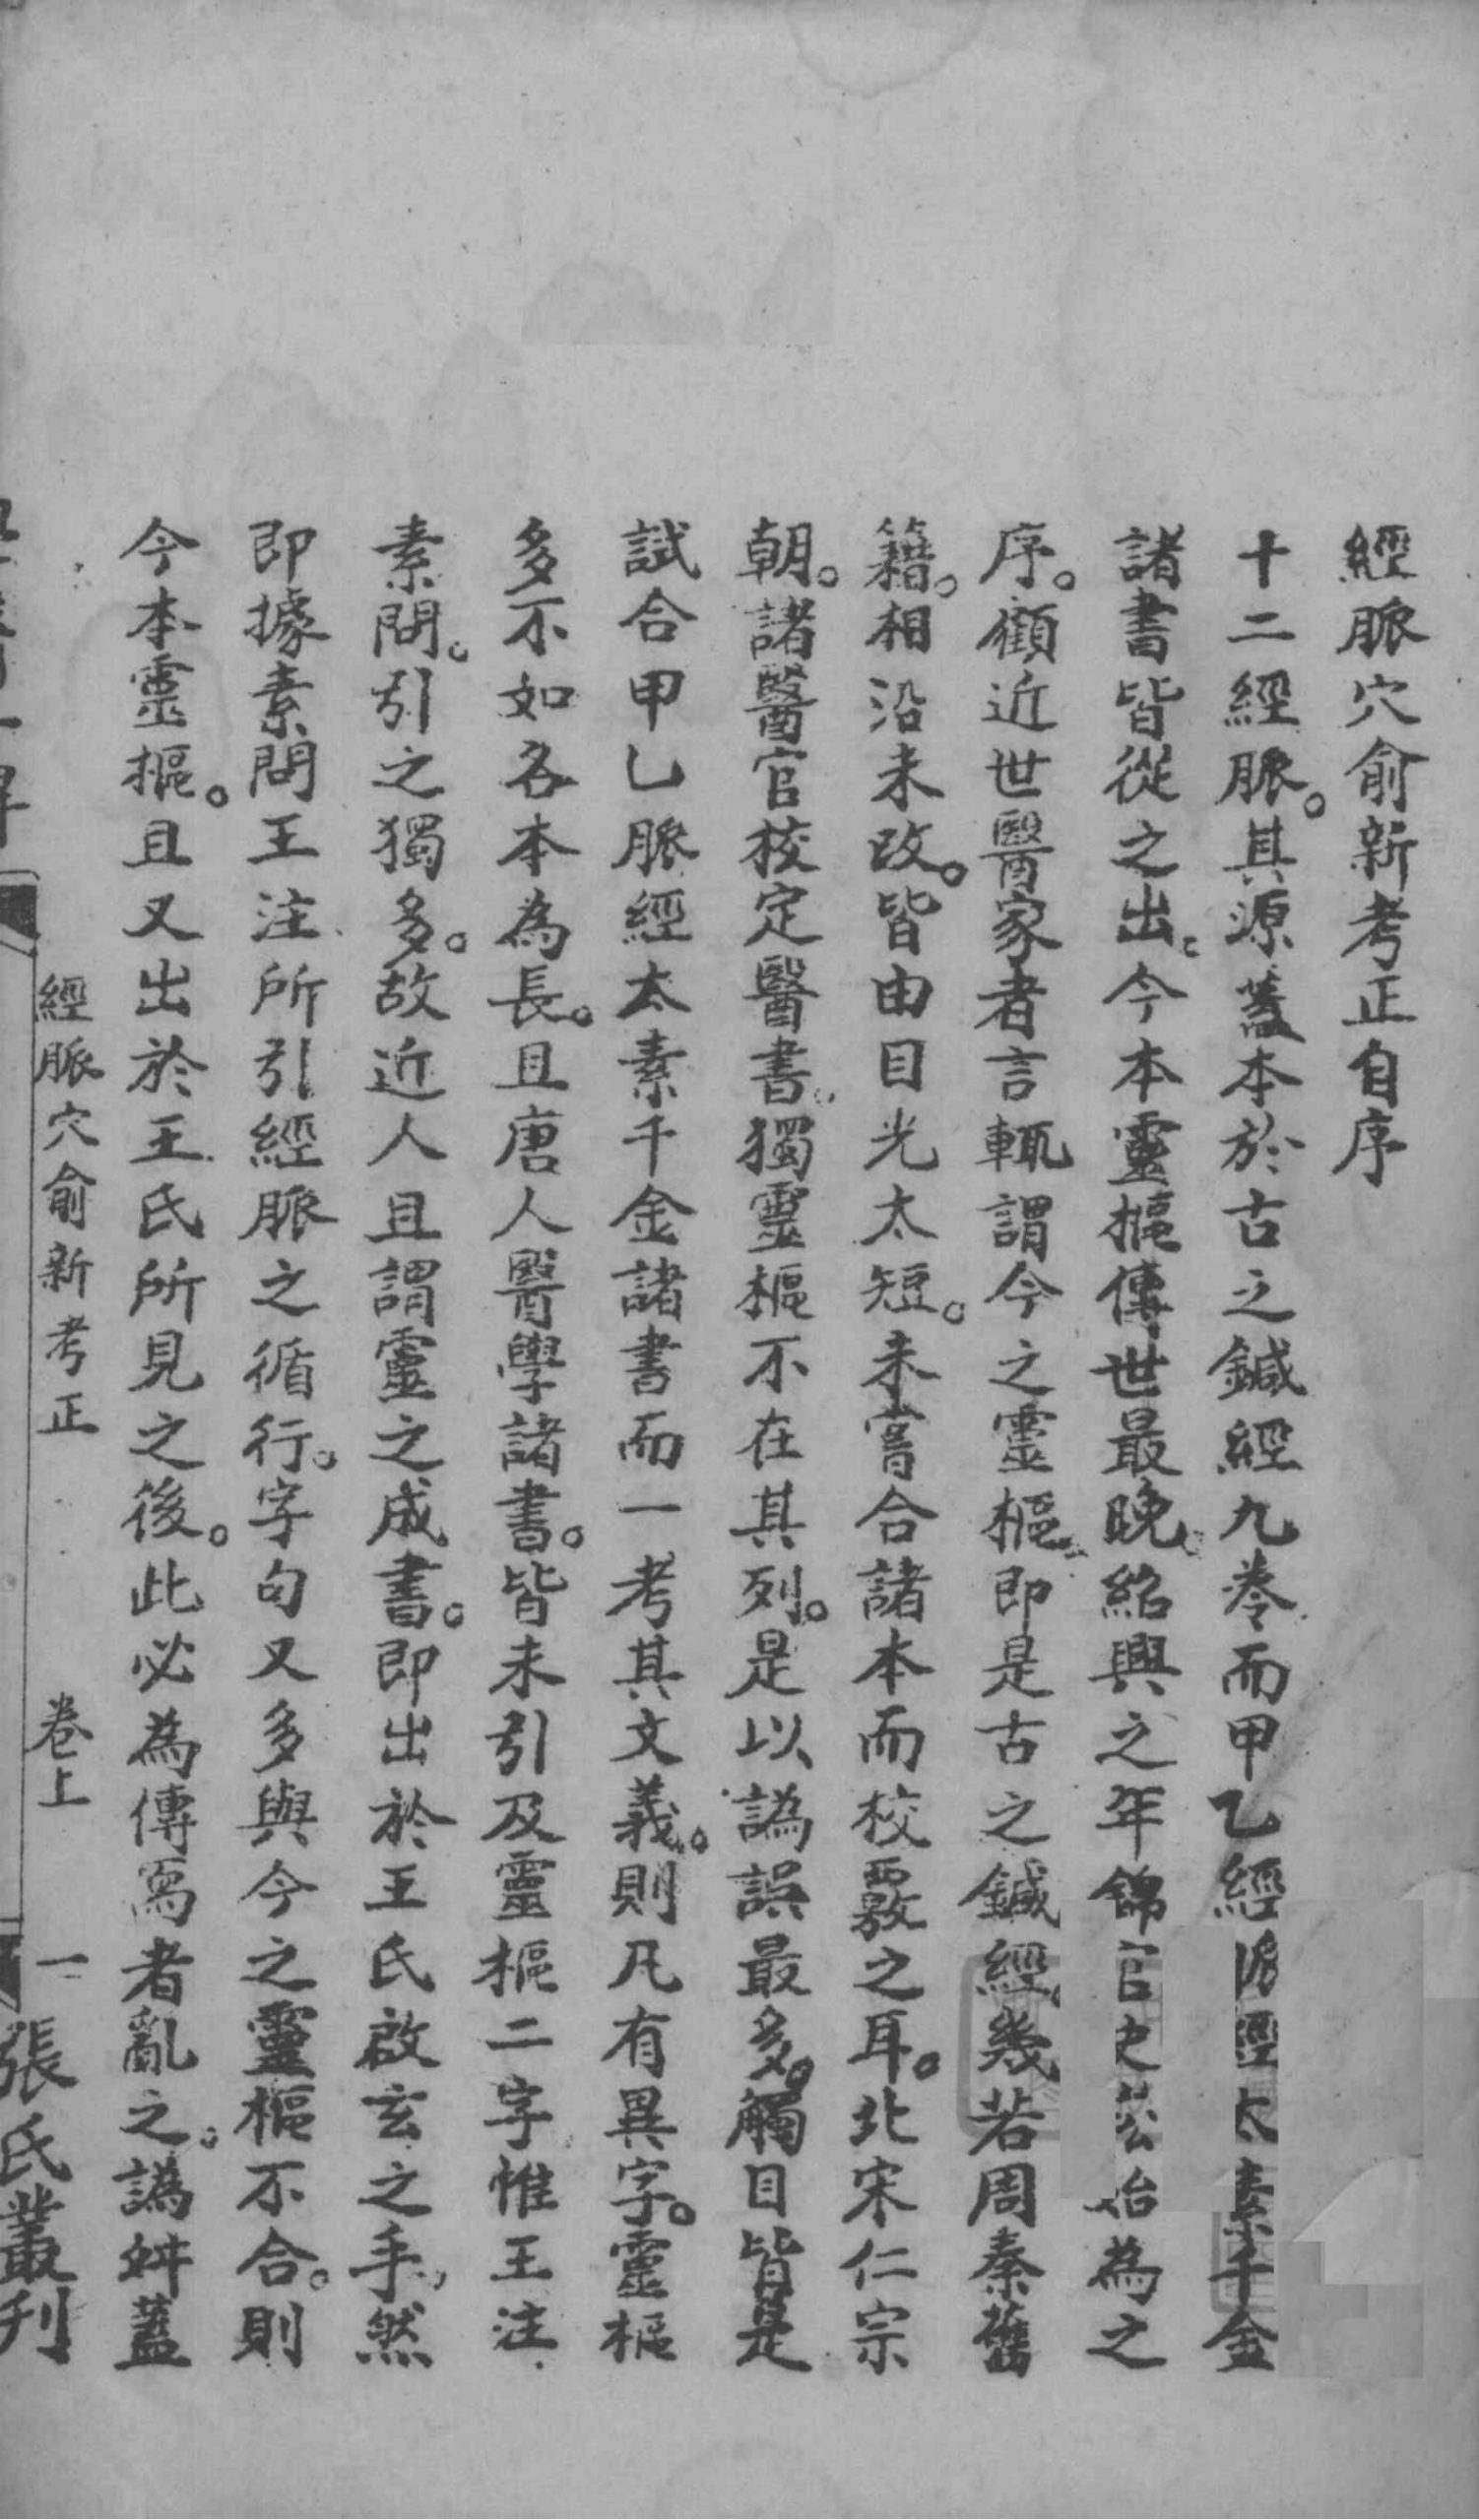 經脈穴俞新考正自序
十二經脈。其源蓋本於古之鍼經九卷而甲乙經脈經太素千金
諸書皆從之出。今本靈樞傳世最晚。紹興之年錦官史崧始為之
序。顧近世醫家者言輒謂今之靈樞。即是古之鍼經。幾若周秦舊
籍。相沿未改。皆由目光太短。未嘗合諸本而校覈之耳。北宋仁宗
朝。諸醫官校定醫書。獨靈樞不在其列。是以譌誤最多。觸目皆是
試合甲乙脈經太素千金諸書而一考其文義。則凡有異字。靈樞
多不如各本為長。且唐人醫學諸書。皆未引及靈樞二字惟王注
素問。引之獨多。故近人且謂靈之成書。即出於王氏啟玄之手。然
即據素問王注所引經脈之循行。字句又多與今之靈樞不合。則
今本靈樞。且又出於王氏所見之後。此必為傳寫者亂之。譌舛蓋
經脈穴俞新考正 卷上 一
張氏叢刊